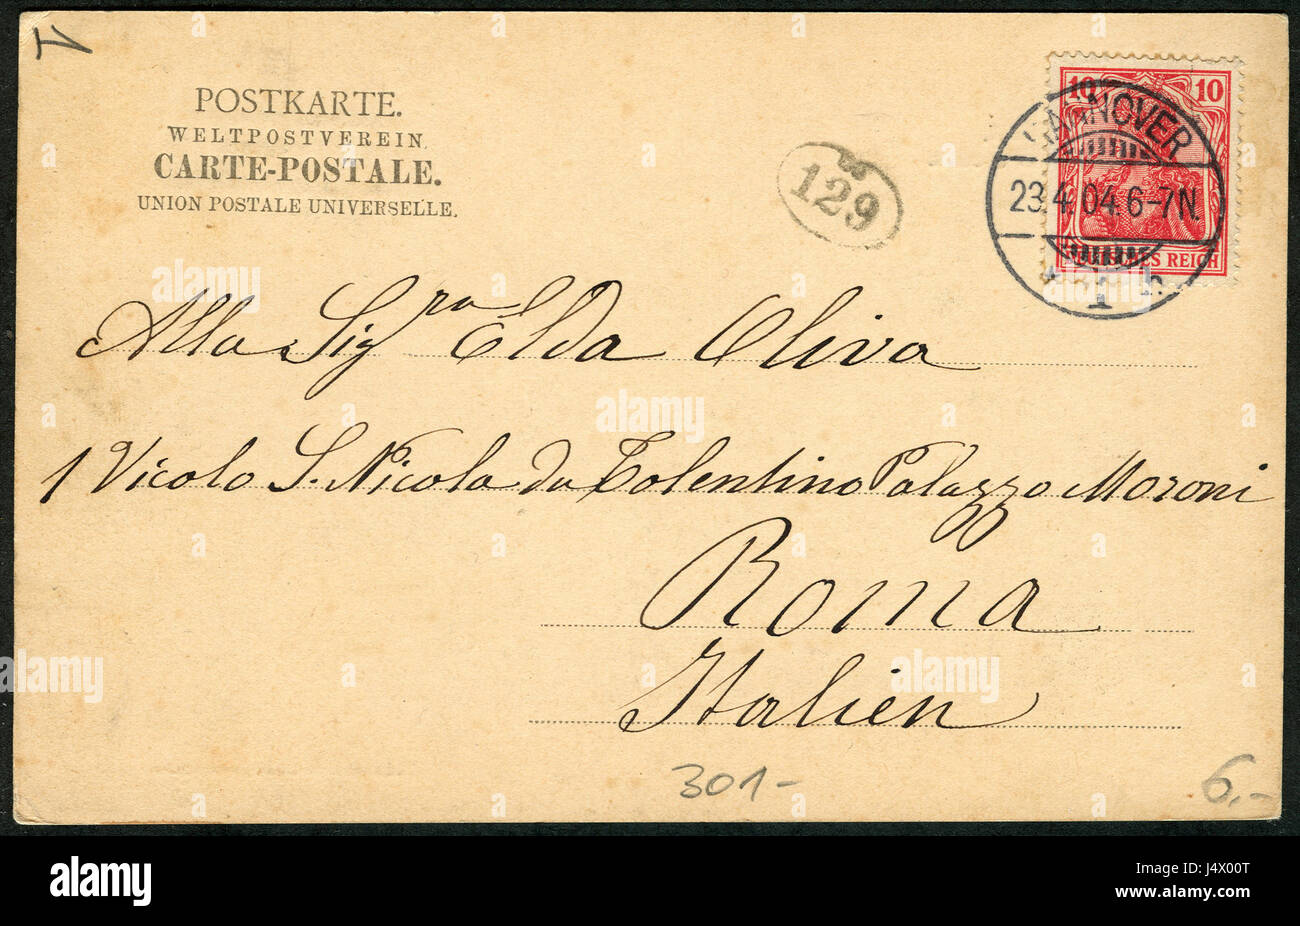 POSTKARTE.
WELTPOSTVEREIN.
CARTE-POSTALE.
UNION POSTALE UNIVERSELLE.
129
10 10
HANNOVER
23.4.04.6-7N.
* 1 n.
REICH
Alla Sigra Elda Oliva
1 Vicolo S. Nicola da Tolentino Palazzo Moroni
Roma
Italien
301-
6,-
alamy
alamy stock photo
Image ID: J4X00T
www.alamy.com